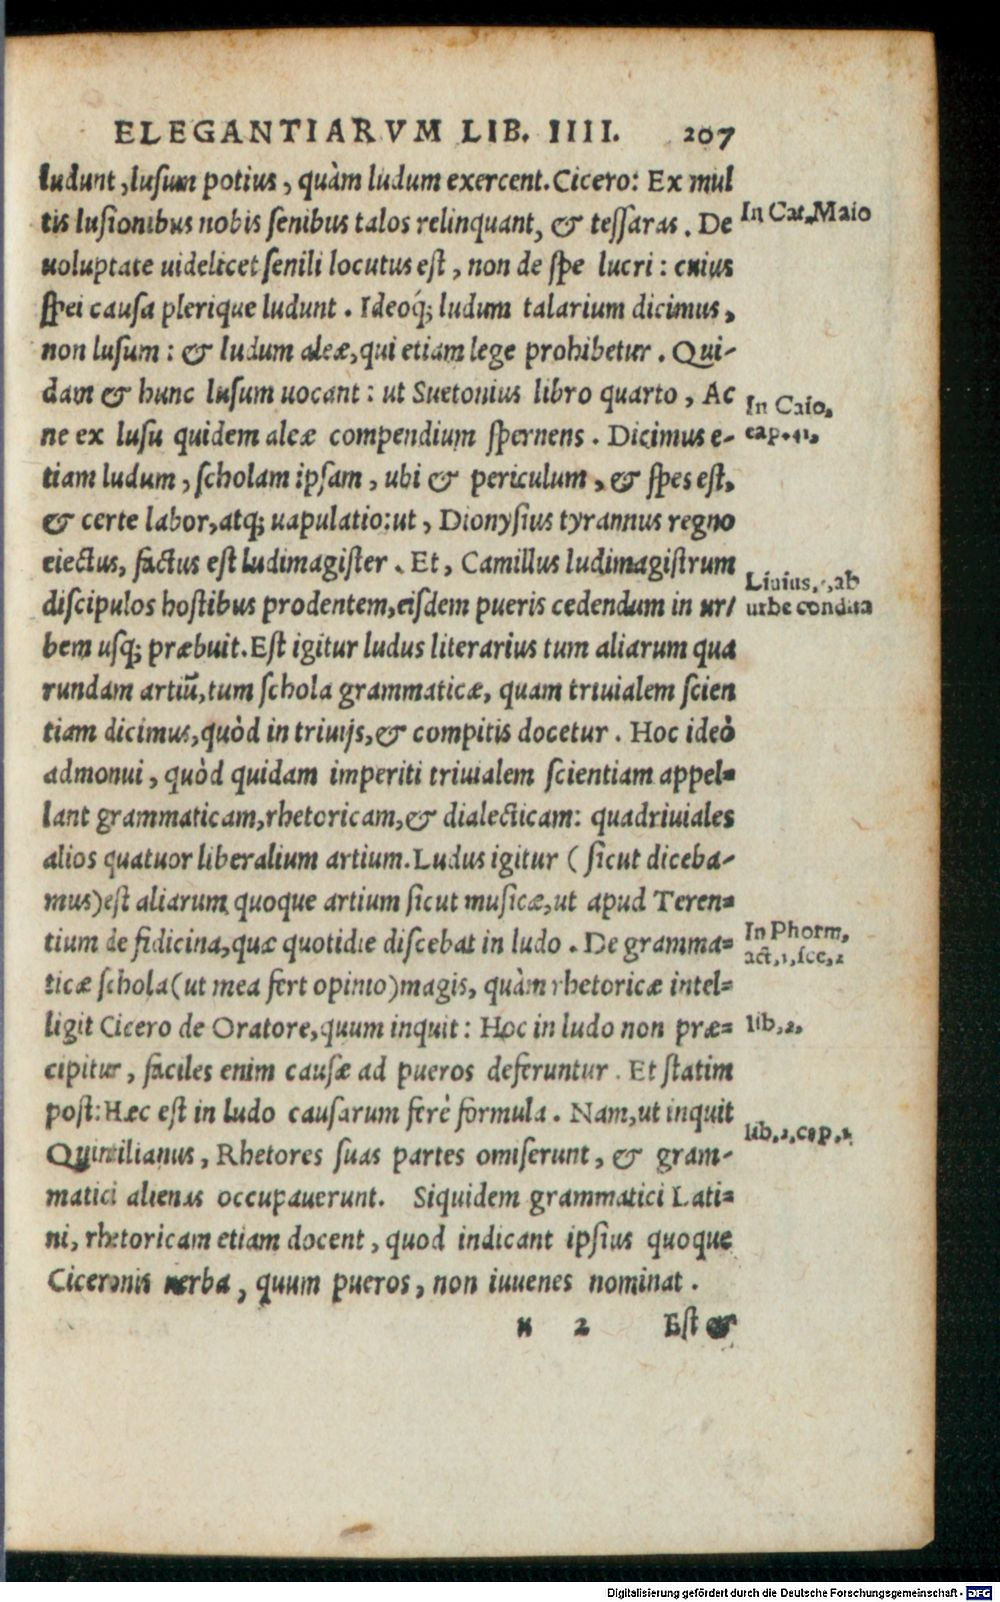 ELEGANTIARVM LIB. IIII. 207
ludunt, lusum potius, quàm ludum exercent. Cicero: Ex mul
tis lusionibus nobis senibus talos relinquant, & tessaras. De
In Cat. Maio
uoluptate uidelicet senili locutus est, non de spe lucri: cuius
spei causa plerique ludunt. Ideoq́; ludum talarium dicimus,
non lusum: & ludum aleæ, qui etiam lege prohibetur. Qui-
dam & hunc lusum uocant: ut Suetonius libro quarto, Ac
In Caio,
ne ex lusu quidem aleæ compendium spernens. Dicimus e-
cap. 41,
tiam ludum, scholam ipsam, ubi & periculum, & spes est,
& certe labor, atq; uapulatio: ut, Dionysius tyrannus regno
eiectus, factus est ludimagister. Et, Camillus ludimagistrum
Liuius, ab
discipulos hostibus prodentem, eisdem pueris cedendum in ur/
urbe condita
bem usq; præbuit. Est igitur ludus literarius tum aliarum qua
rundam artiū, tum schola grammaticæ, quam triuialem scien
tiam dicimus, quòd in triuijs, & compitis docetur. Hoc ideò
admonui, quòd quidam imperiti triuialem scientiam appel=
lant grammaticam, rhetoricam, & dialecticam: quadriuiales
alios quatuor liberalium artium. Ludus igitur (sicut diceba-
mus) est aliarum quoque artium sicut musicæ, ut apud Teren=
tium de fidicina, quæ quotidie discebat in ludo. De gramma=
In Phorm,
act, 1, sce, 2
ticæ schola (ut mea fert opinio) magis, quàm rhetoricæ intel=
ligit Cicero de Oratore, quum inquit: Hoc in ludo non præ=
lib, 2,
cipitur, faciles enim causæ ad pueros deferuntur. Et statim
post: Hæc est in ludo causarum ferè formula. Nam, ut inquit
lib, 2, cap, 1,
Quintilianus, Rhetores suas partes omiserunt, & gram-
matici alienas occupauerunt. Siquidem grammatici Lati=
ni, rhetoricam etiam docent, quod indicant ipsius quoque
Ciceronis uerba, quum pueros, non iuuenes nominat.
n 2 Est &
Digitalisierung gefördert durch die Deutsche Forschungsgemeinschaft - DFG